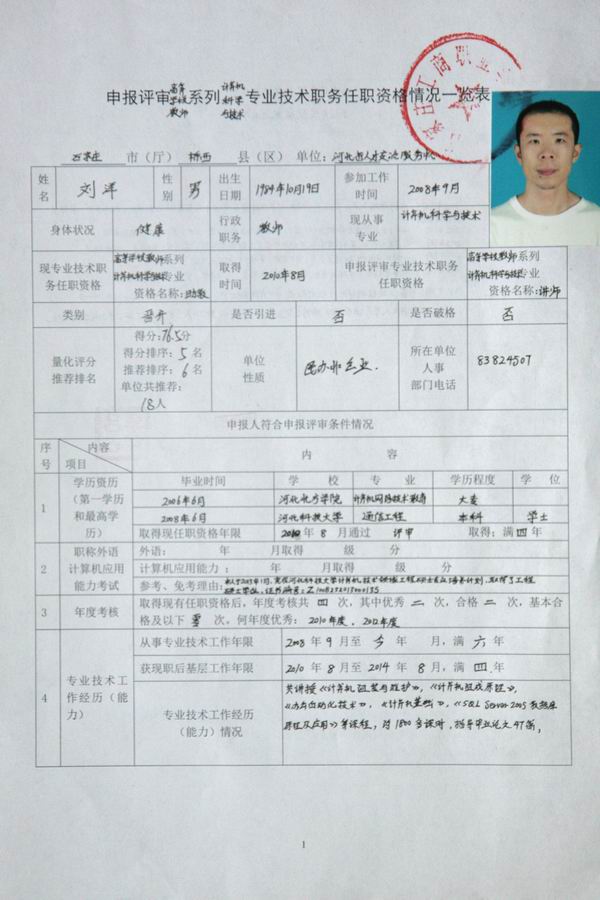 申报评审 高等学校教师 系列 计算机科学与技术 专业技术职务任职资格情况一览表
石家庄 市(厅) 桥西 县(区) 单位:河北省人才交流服务中心
姓名 刘洋 性别 男 出生日期 1984年10月19日 参加工作时间 2008年9月
身体状况 健康 行政职务 教师 现从事专业 计算机科学与技术
现专业技术职务任职资格 高等学校教师系列 计算机科学与技术专业 资格名称:助教 取得时间 2010年8月 申报评审专业技术职务任职资格 高等学校教师系列 计算机科学与技术专业 资格名称:讲师
类别 晋升 是否引进 否 是否破格 否
量化评分推荐排名 得分:76.5分
得分排序:5名
推荐排序:6名
单位共推荐:
18人
单位性质 民办非企业 所在单位人事部门电话 83824507
申报人符合申报评审条件情况
序号 内容 项目 内 容
1 学历资历(第一学历和最高学历) 毕业时间 学 校 专 业 学历程度 学 位
2006年6月 河北 学院 计算机网络技术教育 大专
2008年6月 河北科技大学 通信工程 本科 学士
取得现任职资格年限 2010年8月通过 评审 取得:满四年
2 职称外语计算机应用能力考试 外语: 年 月取得 级 分
计算机应用能力: 年 月取得 级 分
参考、免考理由:
3 年度考核 取得现有任职资格后,年度考核共四次,其中优秀二次,合格二次,基本合
格及以下零次,何年度优秀:2010年度,2012年度
4 专业技术工作经历(能力) 从事专业技术工作年限 2008年9月至今年 月,满六年
获现职后基层工作年限 2010年8月至2014年8月,满四年
专业技术工作经历(能力)情况 共讲授《计算机组装与维护》,《计算机组成原理》,
《办公自动化技术》,《计算机基础》,《SQL Server 2005数据库
原理及应用》等课程,约1800多课时,指导毕业论文47篇,
1